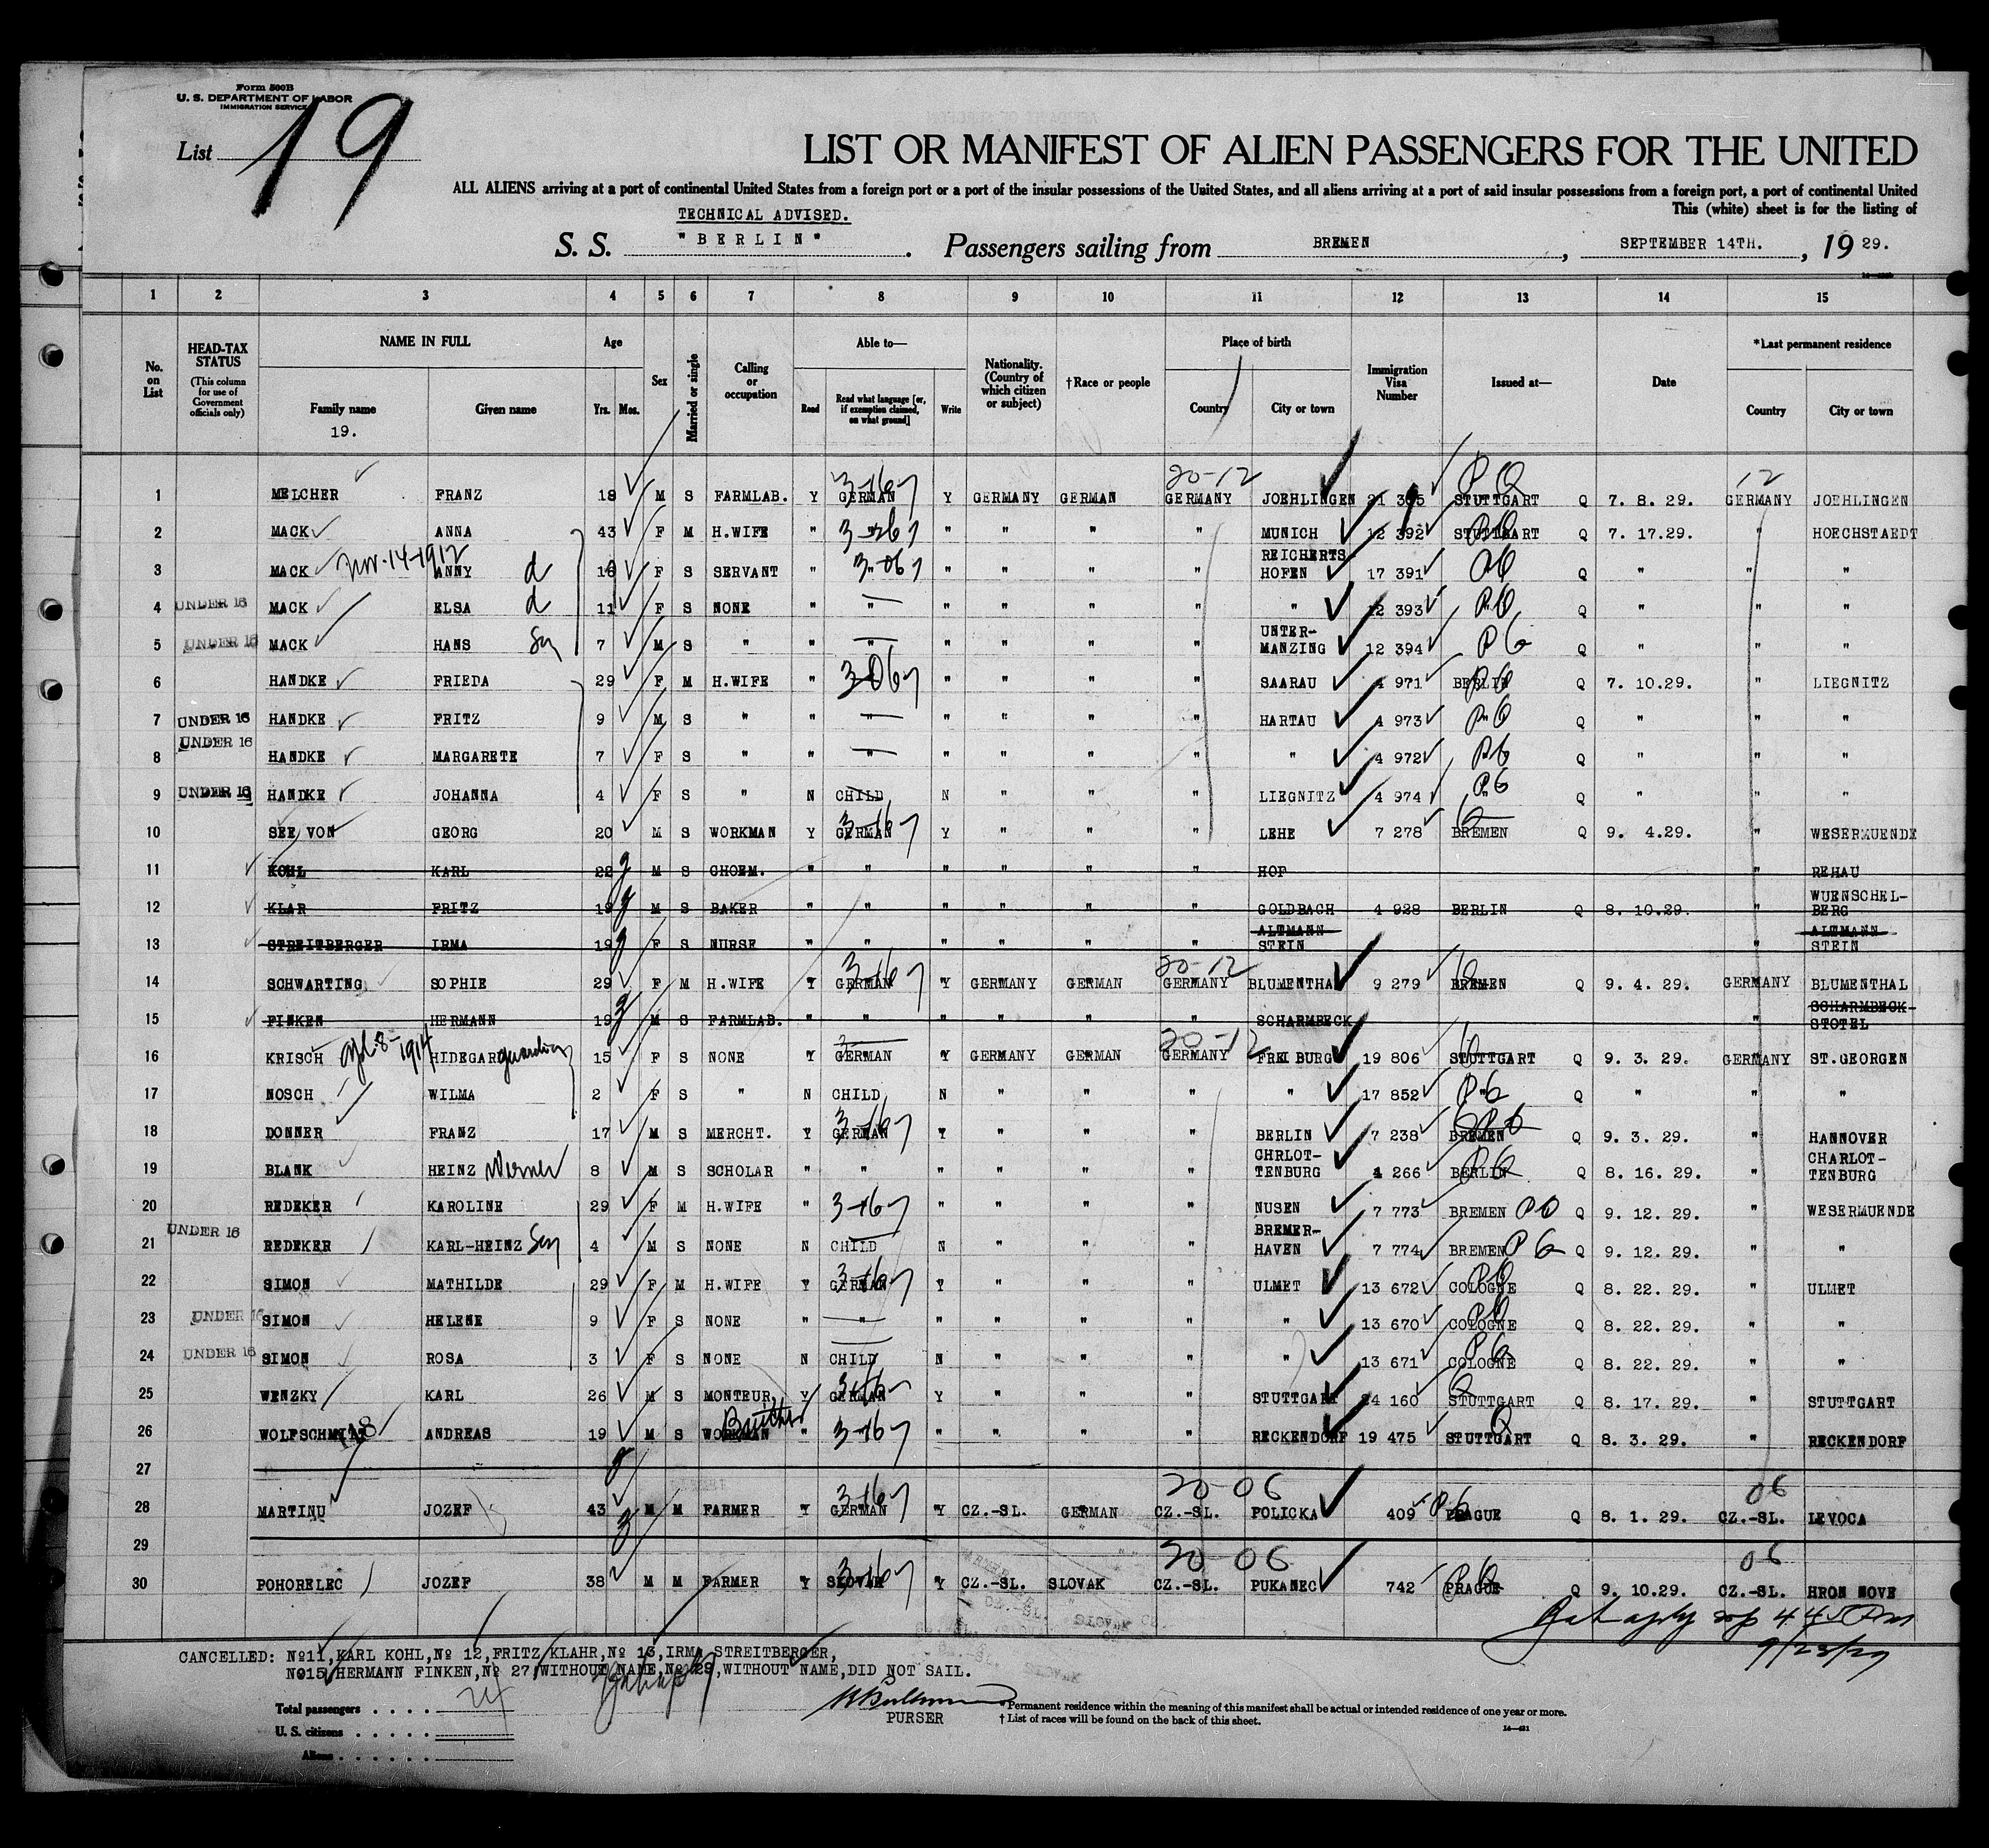 Form 500B
U. S. DEPARTMENT OF LABOR
IMMIGRATION SERVICE
List 19
LIST OR MANIFEST OF ALIEN PASSENGERS FOR THE UNITED
ALL ALIENS arriving at a port of continental United States from a foreign port or a port of the insular possessions of the United States, and all aliens arriving at a port of said insular possessions from a foreign port, a port of continental United
This (white) sheet is for the listing of
TECHNICAL ADVISED.
S. S. "BERLIN". Passengers sailing from BREMEN, SEPTEMBER 14TH., 19 29.
1 2 3 4 5 6 7 8 9 10 11 12 13 14 15
No. on List
HEAD-TAX STATUS (This column for use of Government officials only)
NAME IN FULL
Family name Given name
19.
Age
Yrs. Mos.
Sex
Married or single
Calling or occupation
Able to—
Read Read what language [or, if exemption claimed, on what ground] Write
Nationality. (Country of which citizen or subject)
†Race or people
Place of birth
Country City or town
Immigration Visa Number
Issued at—
Date
*Last permanent residence
Country City or town
20-12 12
1 MELCHER FRANZ 18 M S FARMLAB. Y GERMAN Y GERMANY GERMAN GERMANY JOEHLINGEN STUTTGART Q 7. 8. 29. GERMANY JOEHLINGEN
2 MACK ANNA 43 F M H.WIFE " " " " " MUNICH 12 392 STUTTGART Q 7. 17.29. " HOECHSTAEDT
3 MACK Nov-14-1912 ANNY d F S SERVANT " " " " " REICHERTS HOFEN 17 391 Q " " "
4 UNDER 16 MACK ELSA d 11 F S NONE " " " " " " " 12 393 Q " " "
5 UNDER 16 MACK HANS Son 7 M S " " " " " " " UNTER-MANZING 12 394 Q " " "
6 HANDKE FRIEDA 29 F M H.WIFE " " " " " SAARAU 4 971 BERLIN Q 7. 10.29. " LIEGNITZ
7 UNDER 16 HANDKE FRITZ 9 M S " " " " " " HARTAU 4 973 Q " " "
8 UNDER 16 HANDKE MARGARETE 7 F S " " " " " " " 4 972 Q " " "
9 UNDER 16 HANDKE JOHANNA 4 F S " N CHILD N " " " LIEGNITZ 4 974 Q " " "
10 SEE VON GEORG 20 M S WORKMAN Y GERMAN Y " " " LEHE 7 278 BREMEN Q 9. 4.29. " WESERMUENDE
11 KOHL KARL 22 M S CHOEM. " " " " " " HOF " REHAU
12 KLAR FRITZ 19 M S BAKER " " " " " " GOLDBACH 4 928 BERLIN Q 8. 10.29. " WUENSCHEL-BERG
13 STREITBERGER IRMA 19 F S NURSE " " " " " " ALTMANN STEIN " ALTMANN STEIN
20-12
14 SCHWARTING SOPHIE 29 F M H.WIFE Y GERMAN Y GERMANY GERMAN GERMANY BLUMENTHAL 9 279 BREMEN Q 9. 4. 29. GERMANY BLUMENTHAL
15 FINKEN HERMANN 19 M S FARMLAB. " " " " " " SCHARMBECK " SCHARMBECK-STOTEL
20-12
16 KRISCH Apl-8-1914 HIDEGARD guardian 15 F S NONE Y GERMAN Y GERMANY GERMAN GERMANY FREIBURG 19 806 STUTTGART Q 9. 3. 29. GERMANY ST.GEORGEN
17 NOSCH WILMA 2 F S " N CHILD N " " " " 17 852 " Q " " "
18 DONNER FRANZ 17 M S MERCHT. Y GERMAN Y " " " BERLIN 7 238 BREMEN Q 9. 3. 29. " HANNOVER
19 BLANK HEINZ Werner 8 M S SCHOLAR " " " " " " CHRLOT-TENBURG 4 266 BERLIN Q 8. 16. 29. " CHARLOT-TENBURG
20 REDEKER KAROLINE 29 F M H.WIFE " 3-167 " " " " NUSEN 7 773 BREMEN Q 9. 12. 29. " WESERMUENDE
21 UNDER 16 REDEKER KARL-HEINZ Son 4 M S NONE N CHILD N " " " BREMER-HAVEN 7 774 BREMEN Q 9. 12. 29. " "
22 SIMON MATHILDE 29 F M H.WIFE Y GERMAN Y " " " ULMET 13 672 COLOGNE Q 8. 22. 29. " ULMET
23 UNDER 16 SIMON HELENE 9 F S NONE " " " " " " " 13 670 COLOGNE Q 8. 22. 29. " "
24 UNDER 16 SIMON ROSA 3 F S NONE N CHILD N " " " " 13 671 COLOGNE Q 8. 22. 29. " "
25 WENZKY KARL 26 M S MONTEUR Y GERMAN Y " " " STUTTGART 24 160 STUTTGART Q 8. 17. 29. " STUTTGART
26 WOLFSCHMITT ANDREAS 19 M S WORKMAN Butcher " 3-167 " " " " RECKENDORF 19 475 STUTTGART Q 8. 3. 29. " RECKENDORF
27
20-06 06
28 MARTINU JOZEF 43 M M FARMER Y GERMAN Y CZ.-SL. GERMAN CZ.-SL. POLICKA 409 PRAGUE Q 8. 1. 29. CZ.-SL. LEVOCA
29
20-06 06
30 POHORELEC JOZEF 38 M M FARMER Y SLOVAK Y CZ.-SL. SLOVAK CZ.-SL. PUKANEC 742 PRAGUE Q 9. 10.29. CZ.-SL. HRON NOVE
9/23/29
CANCELLED: No11,KARL KOHL,No 12,FRITZ KLAHR,No 13,IRMA STREITBERGER,
No15,HERMANN FINKEN,No 27,WITHOUT NAME,No 29,WITHOUT NAME,DID NOT SAIL.
Total passengers . . . . 24
U. S. citizens . . . . .
Aliens . . . . . .
PURSER
*Permanent residence within the meaning of this manifest shall be actual or intended residence of one year or more.
† List of races will be found on the back of this sheet.
14—421